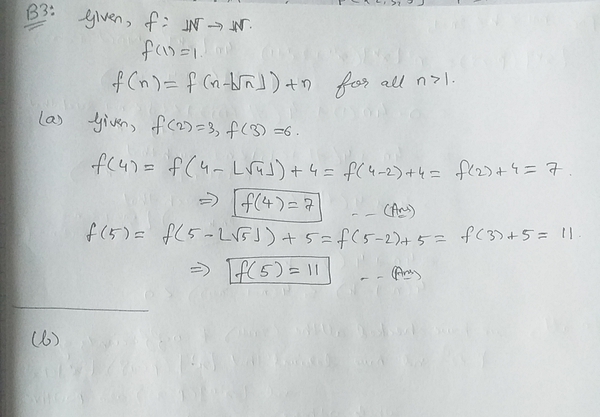 B3: Given, f: ℕ → ℕ.
f(1)=1.
f(n) = f(n-⌊√n⌋)+n for all n>1.
(a) Given, f(2)=3, f(3)=6.
f(4) = f(4-⌊√4⌋)+4 = f(4-2)+4 = f(2)+4 = 7.
⇒ f(4)=7 -- (Ans)
f(5) = f(5-⌊√5⌋)+5 = f(5-2)+5 = f(3)+5 = 11.
⇒ f(5)=11 -- (Ans)
(b)